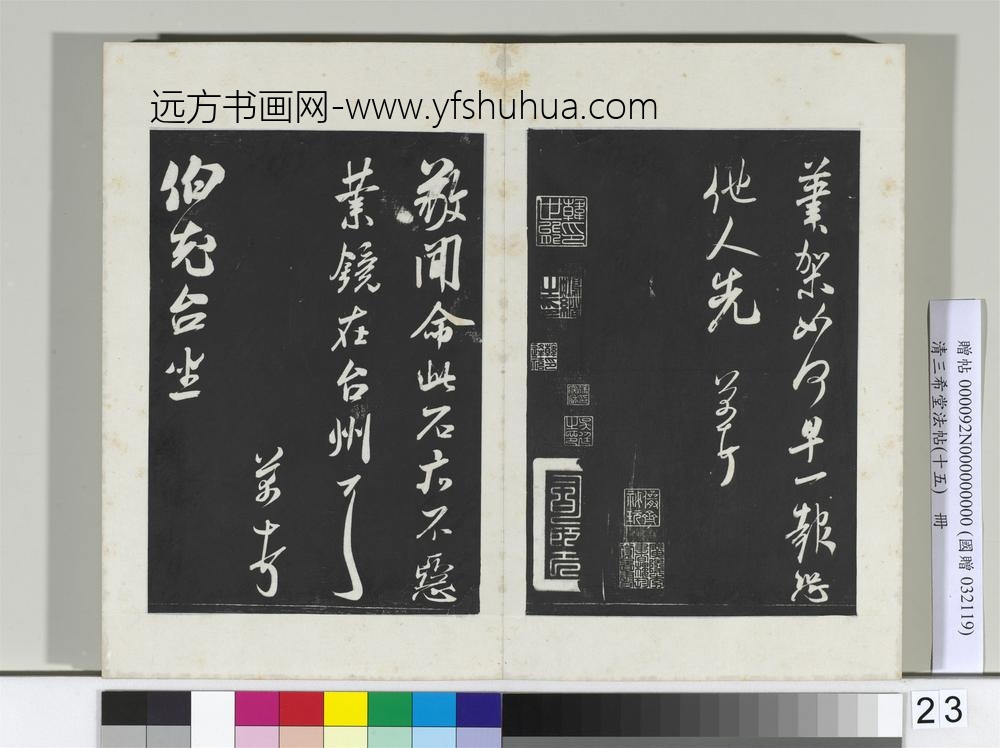 远方书画网-www.yfshuhua.com
筆架如何早一報恐
他人先 芾頓首
敬聞命此石亦不惡
業鏡在台州
芾頓首
伯充台坐
贈帖 000092N000000000 (國贈 032119)
清三希堂法帖(十五) 冊
23